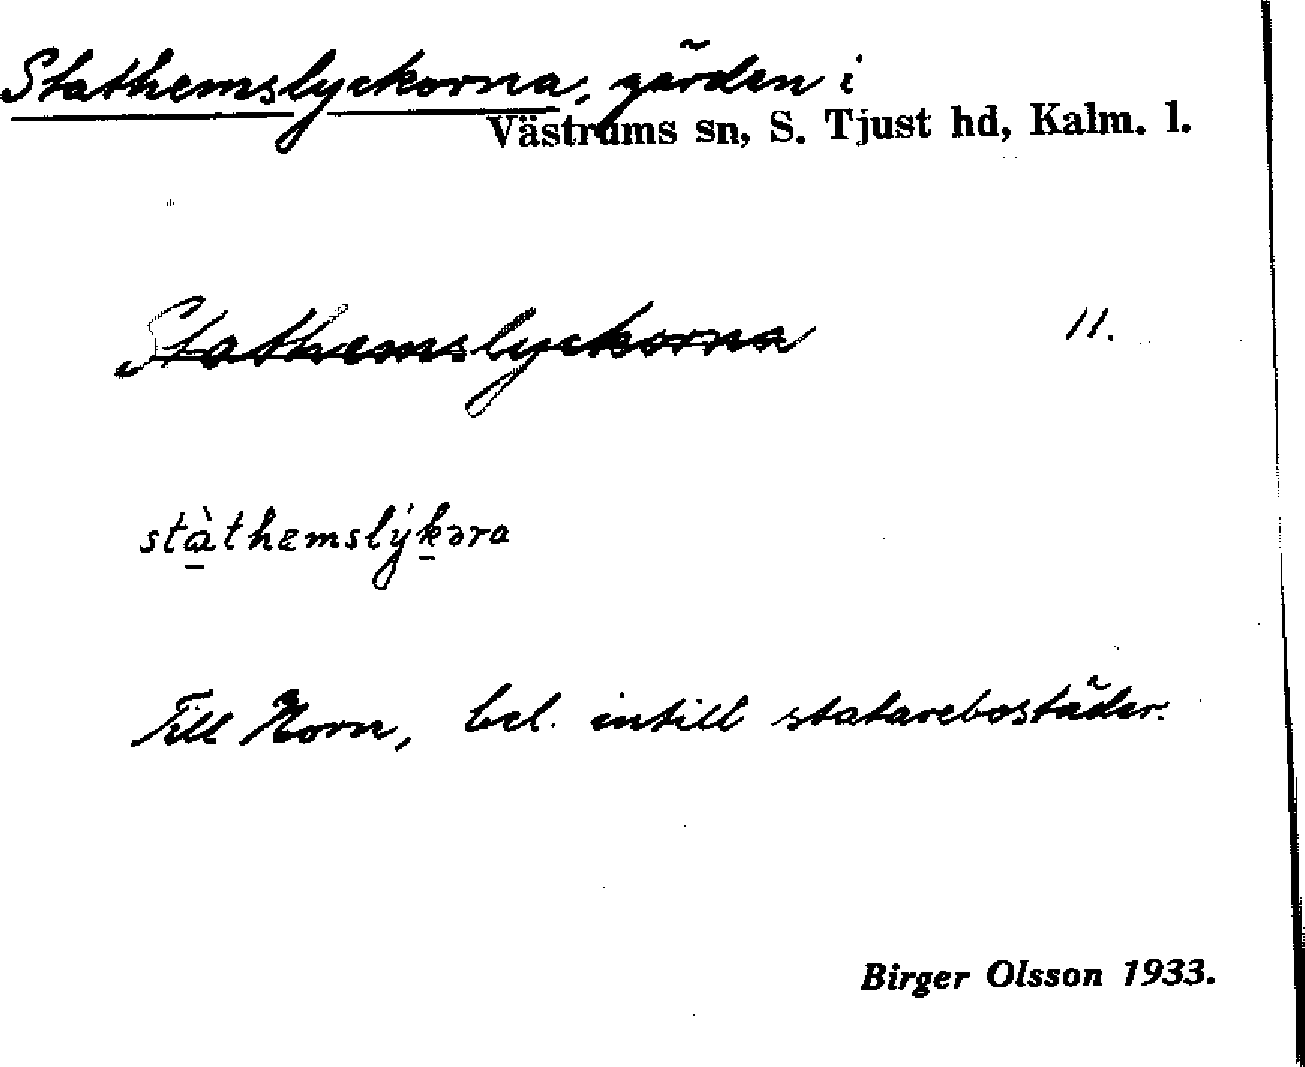 Stathemslyckorna, gärden i
Västrums sn, S. Tjust hd, Kalm. l.
Stathemslyckorna 11.
stàthemslýkəra
Till Horn, bel. intill statarebostäder.
Birger Olsson 1933.